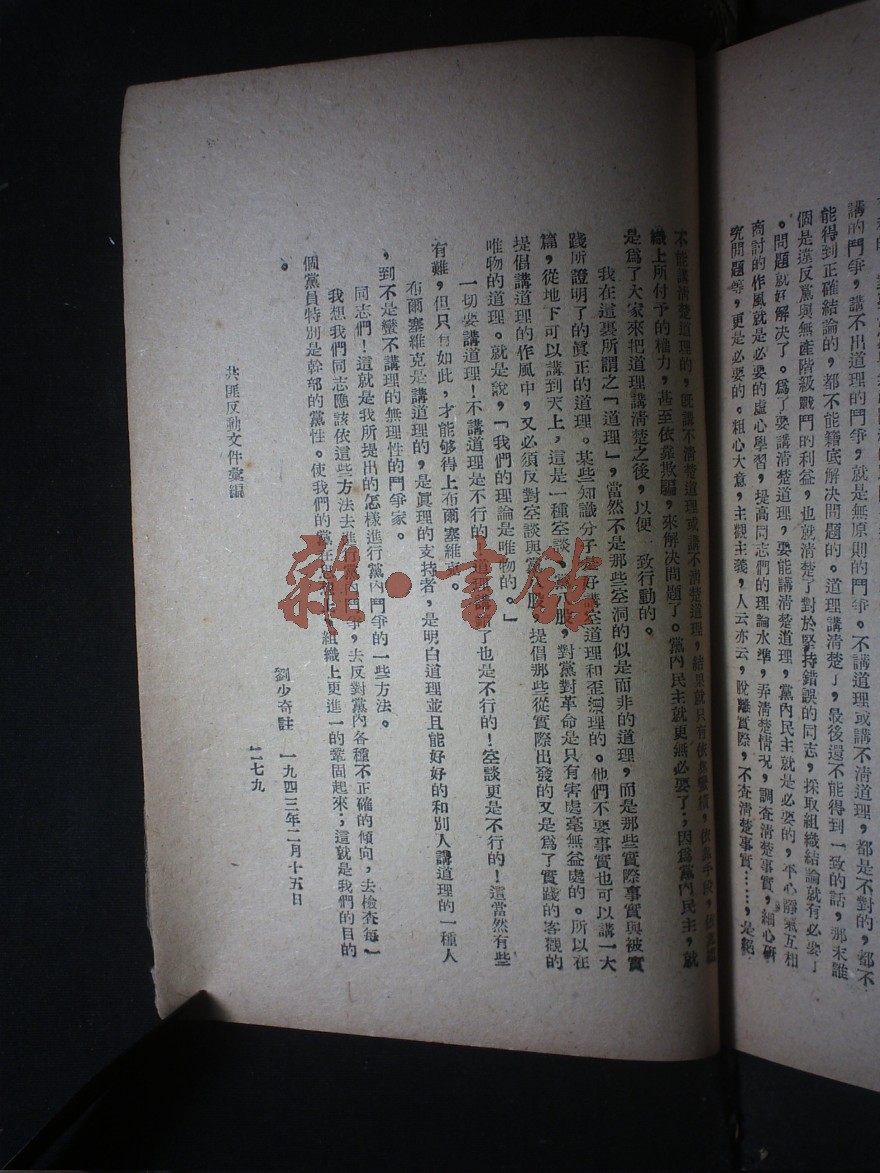 講的鬥爭，講不出道理的鬥爭，就是無原則的鬥爭。不講道理或講不清道理，都是不對的，都不
能得到正確結論的，都不能籍底解决問題的。道理講清楚了，最後還不能得到一致的話，那末誰
個是違反黨與無產階級戰鬥的利益，也就清楚了對於堅持錯誤的同志，採取組織結論就有必要了
。問題就好解决了。爲了要講清楚道理，要能講清楚道理，黨內民主就是必要的，平心靜氣互相
商討的作風就是必要的虛心學習，提高同志們的理論水準，弄清楚情况，調查清楚事實，細心研
究問題等，更是必要的。粗心大意，主觀主義，人云亦云，脫離實際，不查清楚事實……，是絕
不能講清楚道理的，旣講不清楚道理或講不清楚道理，結果就只有依靠蠻橫，依靠手段，依靠組
織上所付予的權力，甚至依靠欺騙，來解决問題了。黨內民主就更無必要了；因爲黨內民主，就
是爲了大家來把道理講清楚之後，以便一致行動的。
我在這裏所謂之「道理」，當然不是那些空洞的似是而非的道理，而是那些實際事實與被實
踐所證明了的眞正的道理。某些知識分子是好講空道理和歪道理的。他們不要事實也可以講一大
篇，從地下可以講到天上，這是一種空談、黨八股，對黨對革命是只有害處毫無益處的。所以在
提倡講道理的作風中，又必須反對空談與黨八股，提倡那些從實際出發的又是爲了實踐的客觀的
唯物的道理。就是說，「我們的理論是唯物的。」
一切要講道理！不講道理是不行的！道理講錯了也是不行的！空談更是不行的！這當然有些
有難，但只有如此，才能够得上布爾塞維克。
布爾塞維克是講道理的，是眞理的支持者，是明白道理並且能好好的和別人講道理的一種人
，到不是蠻不講理的無理性的鬥爭家。
同志們！這就是我所提出的怎樣進行黨內鬥爭的一些方法。
我想我們同志應該依這些方法去進行黨內鬥爭，去反對黨內各種不正確的傾向，去檢查每
個黨員特別是幹部的黨性。使我們的黨在思想上組織上更進一的鞏固起來；這就是我們的目的
。
劉少奇註　一九四三年二月十五日
共匪反動文件彙編
二七九
雜·書館